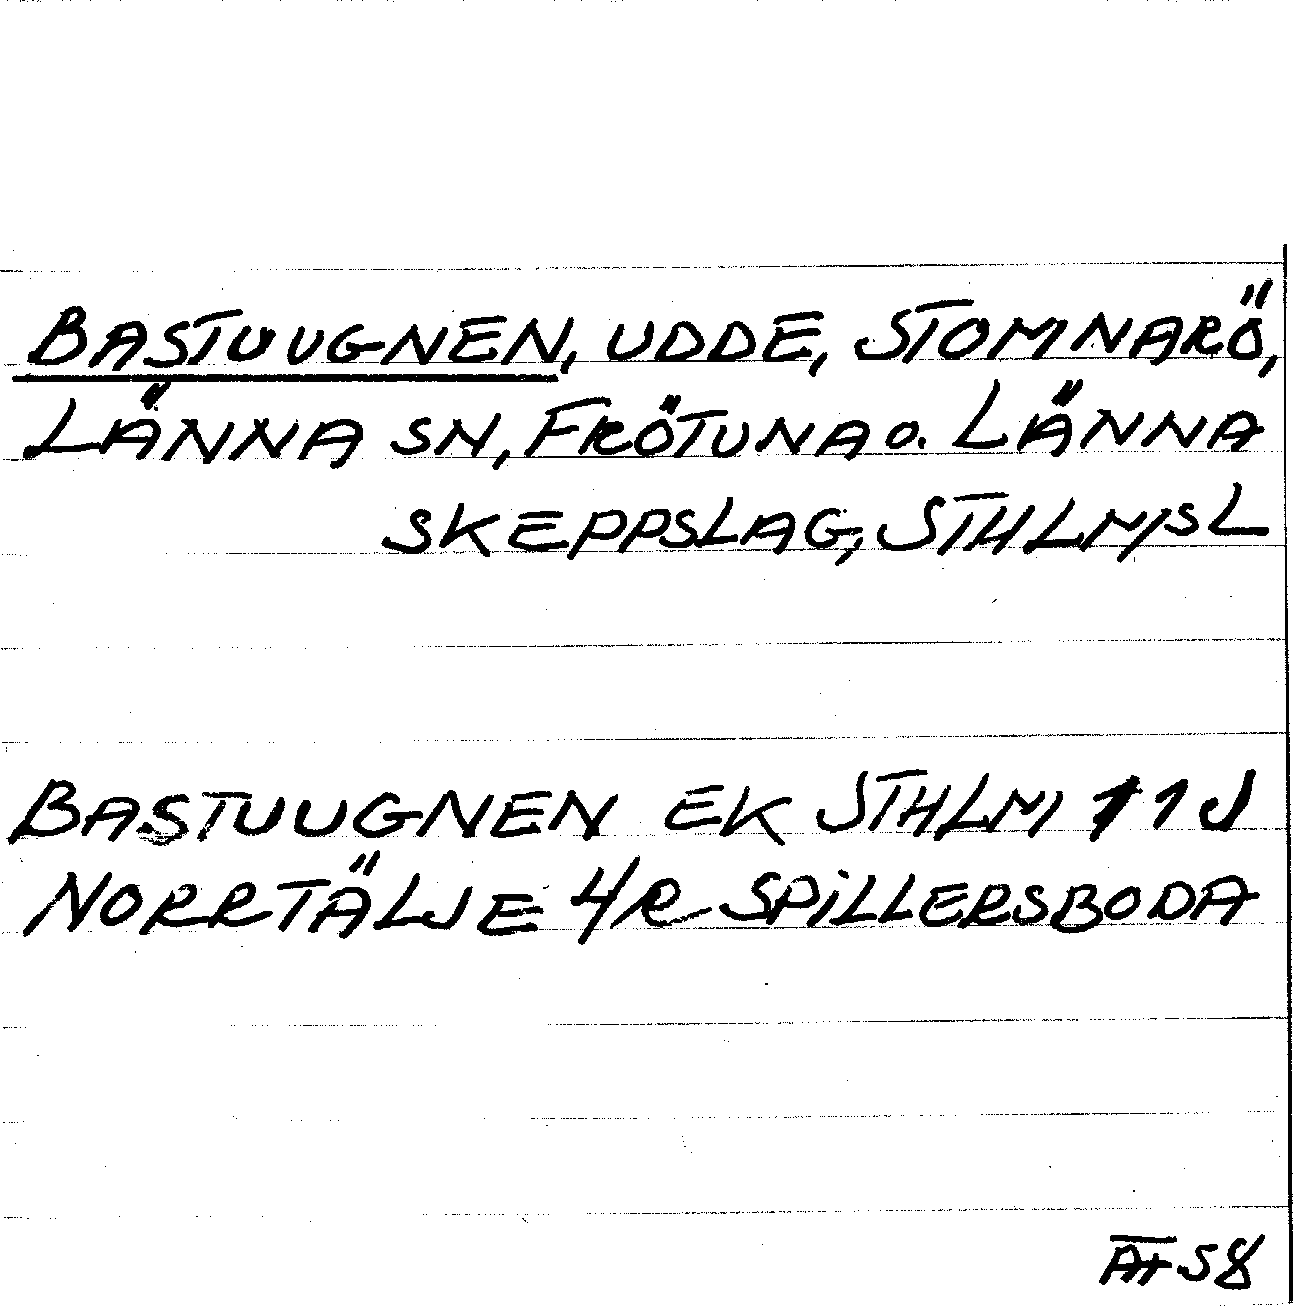 BASTUUGNEN, UDDE, STOMNARÖ,
LÄNNA SN, FRÖTUNA O. LÄNNA
SKEPPSLAG, STHLMSL
BASTUUGNEN EK STHLM 11 J
NORRTÄLJE 4/R SPILLERSBODA
58